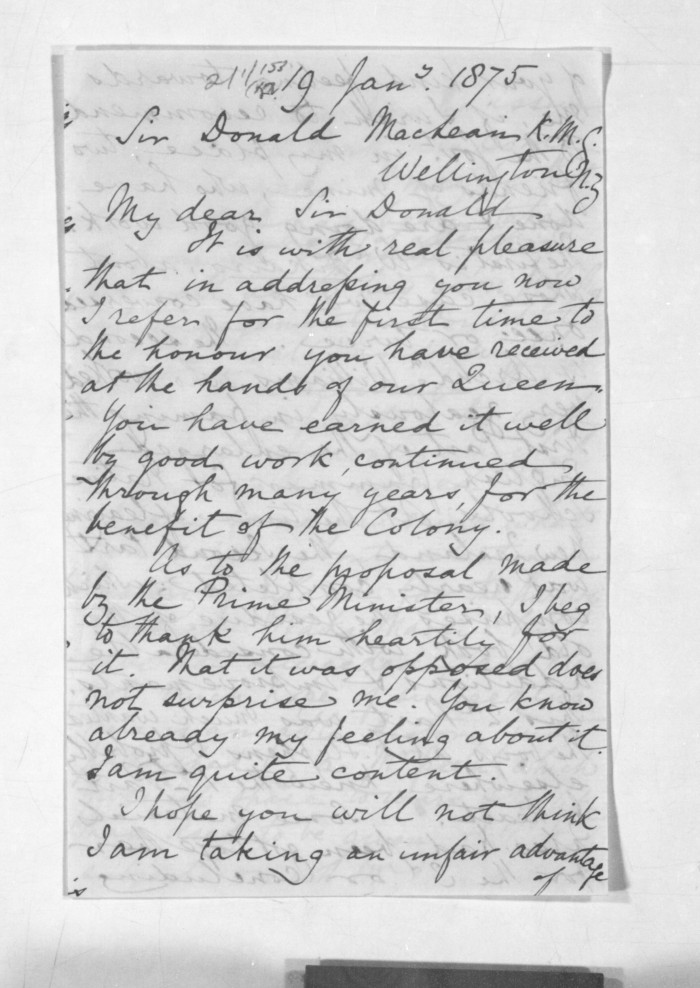 19 Jany. 1875
Sir Donald Maclean K.M.G.
Wellington N.Z
My dear Sir Donald
It is with real pleasure
that in addressing you now
I refer for the first time to
the honour you have received
at the hands of our Queen.
You have earned it well
by good work, continued
through many years, for the
benefit of the Colony.
As to the proposal made
by the Prime Minister, I beg
to thank him heartily for
it. That it was opposed does
not surprise me. You know
already my feeling about it.
I am quite content.
I hope you will not think
I am taking an unfair advantage
of